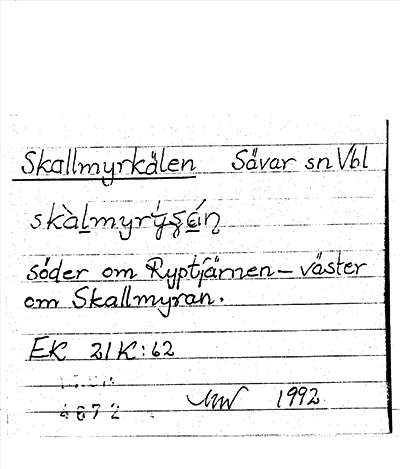 Skallmyrkälen Sävar sn Vbl
söder om Ryptjärnen – väster
om Skallmyran.
EK 21K:62
4872
1992